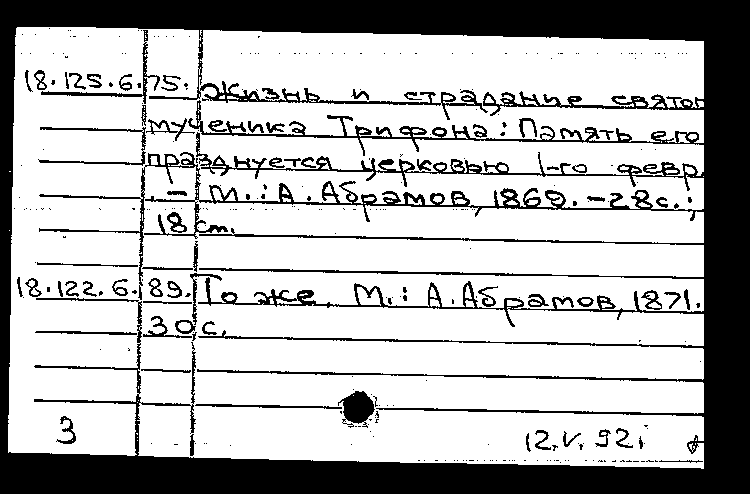 18.125.6.75. Жизнь и страдание святог
мученика Трифона: Память его
празднуется церковью 1-го февр.
. – М.: А. Абрамов, 1869. – 28с.;
18 cm.
18.122.6.89. То же. М.: А. Абрамов, 1871.
30 с.
3
12.V.92г